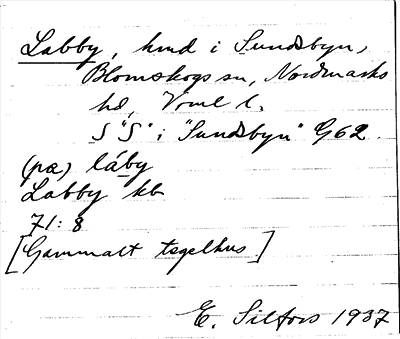 Labby, hmd i Sundsbyn,
Blomskogs sn, Nordmarks
hd, Vrml l.
S "S" i "Sundsbyn" G62.
(pœ) láby
Labby kb
71:8
[Gammalt tegelhus]
E. Silfors 1937